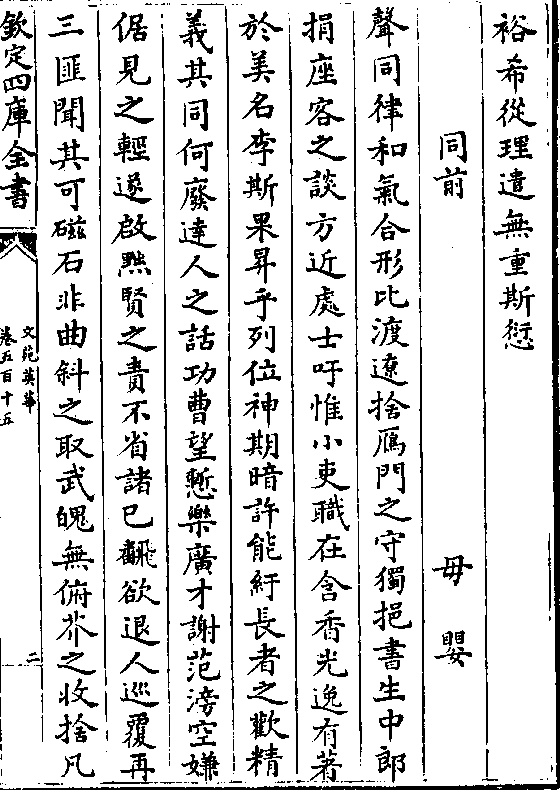 裕希從理遣無重斯愆
同前　毋嬰
聲同律和氣合形比渡遼捨鴈門之守獨挹書生中郎
捐座客之談方近處士吁惟小吏職在含香光逸有著
於美名李斯果昇乎列位神期暗許能紆長者之歡精
義其同何廢達人之話功曹望慙樂廣才謝范滂空嫌
倨見之輕遂啟黙賢之責不省諸已飜欲退人巡覆再
三匪聞其可磁石非曲斜之取武魄無俯芥之收捨凡
欽定四庫全書
文苑英華
卷五百十五
二